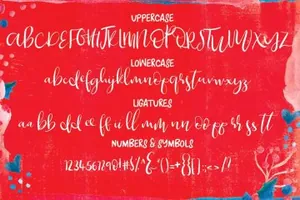 UPPERCASE
ABCDEFGHIJKLMNOPQRSTUVWXYZ
LOWERCASE
abcdefghijklmnopqrstuvwxyz
LIGATURES
aa bb dd ee ff ii ll mm nn oo pp rr ss tt
NUMBERS & SYMBOLS